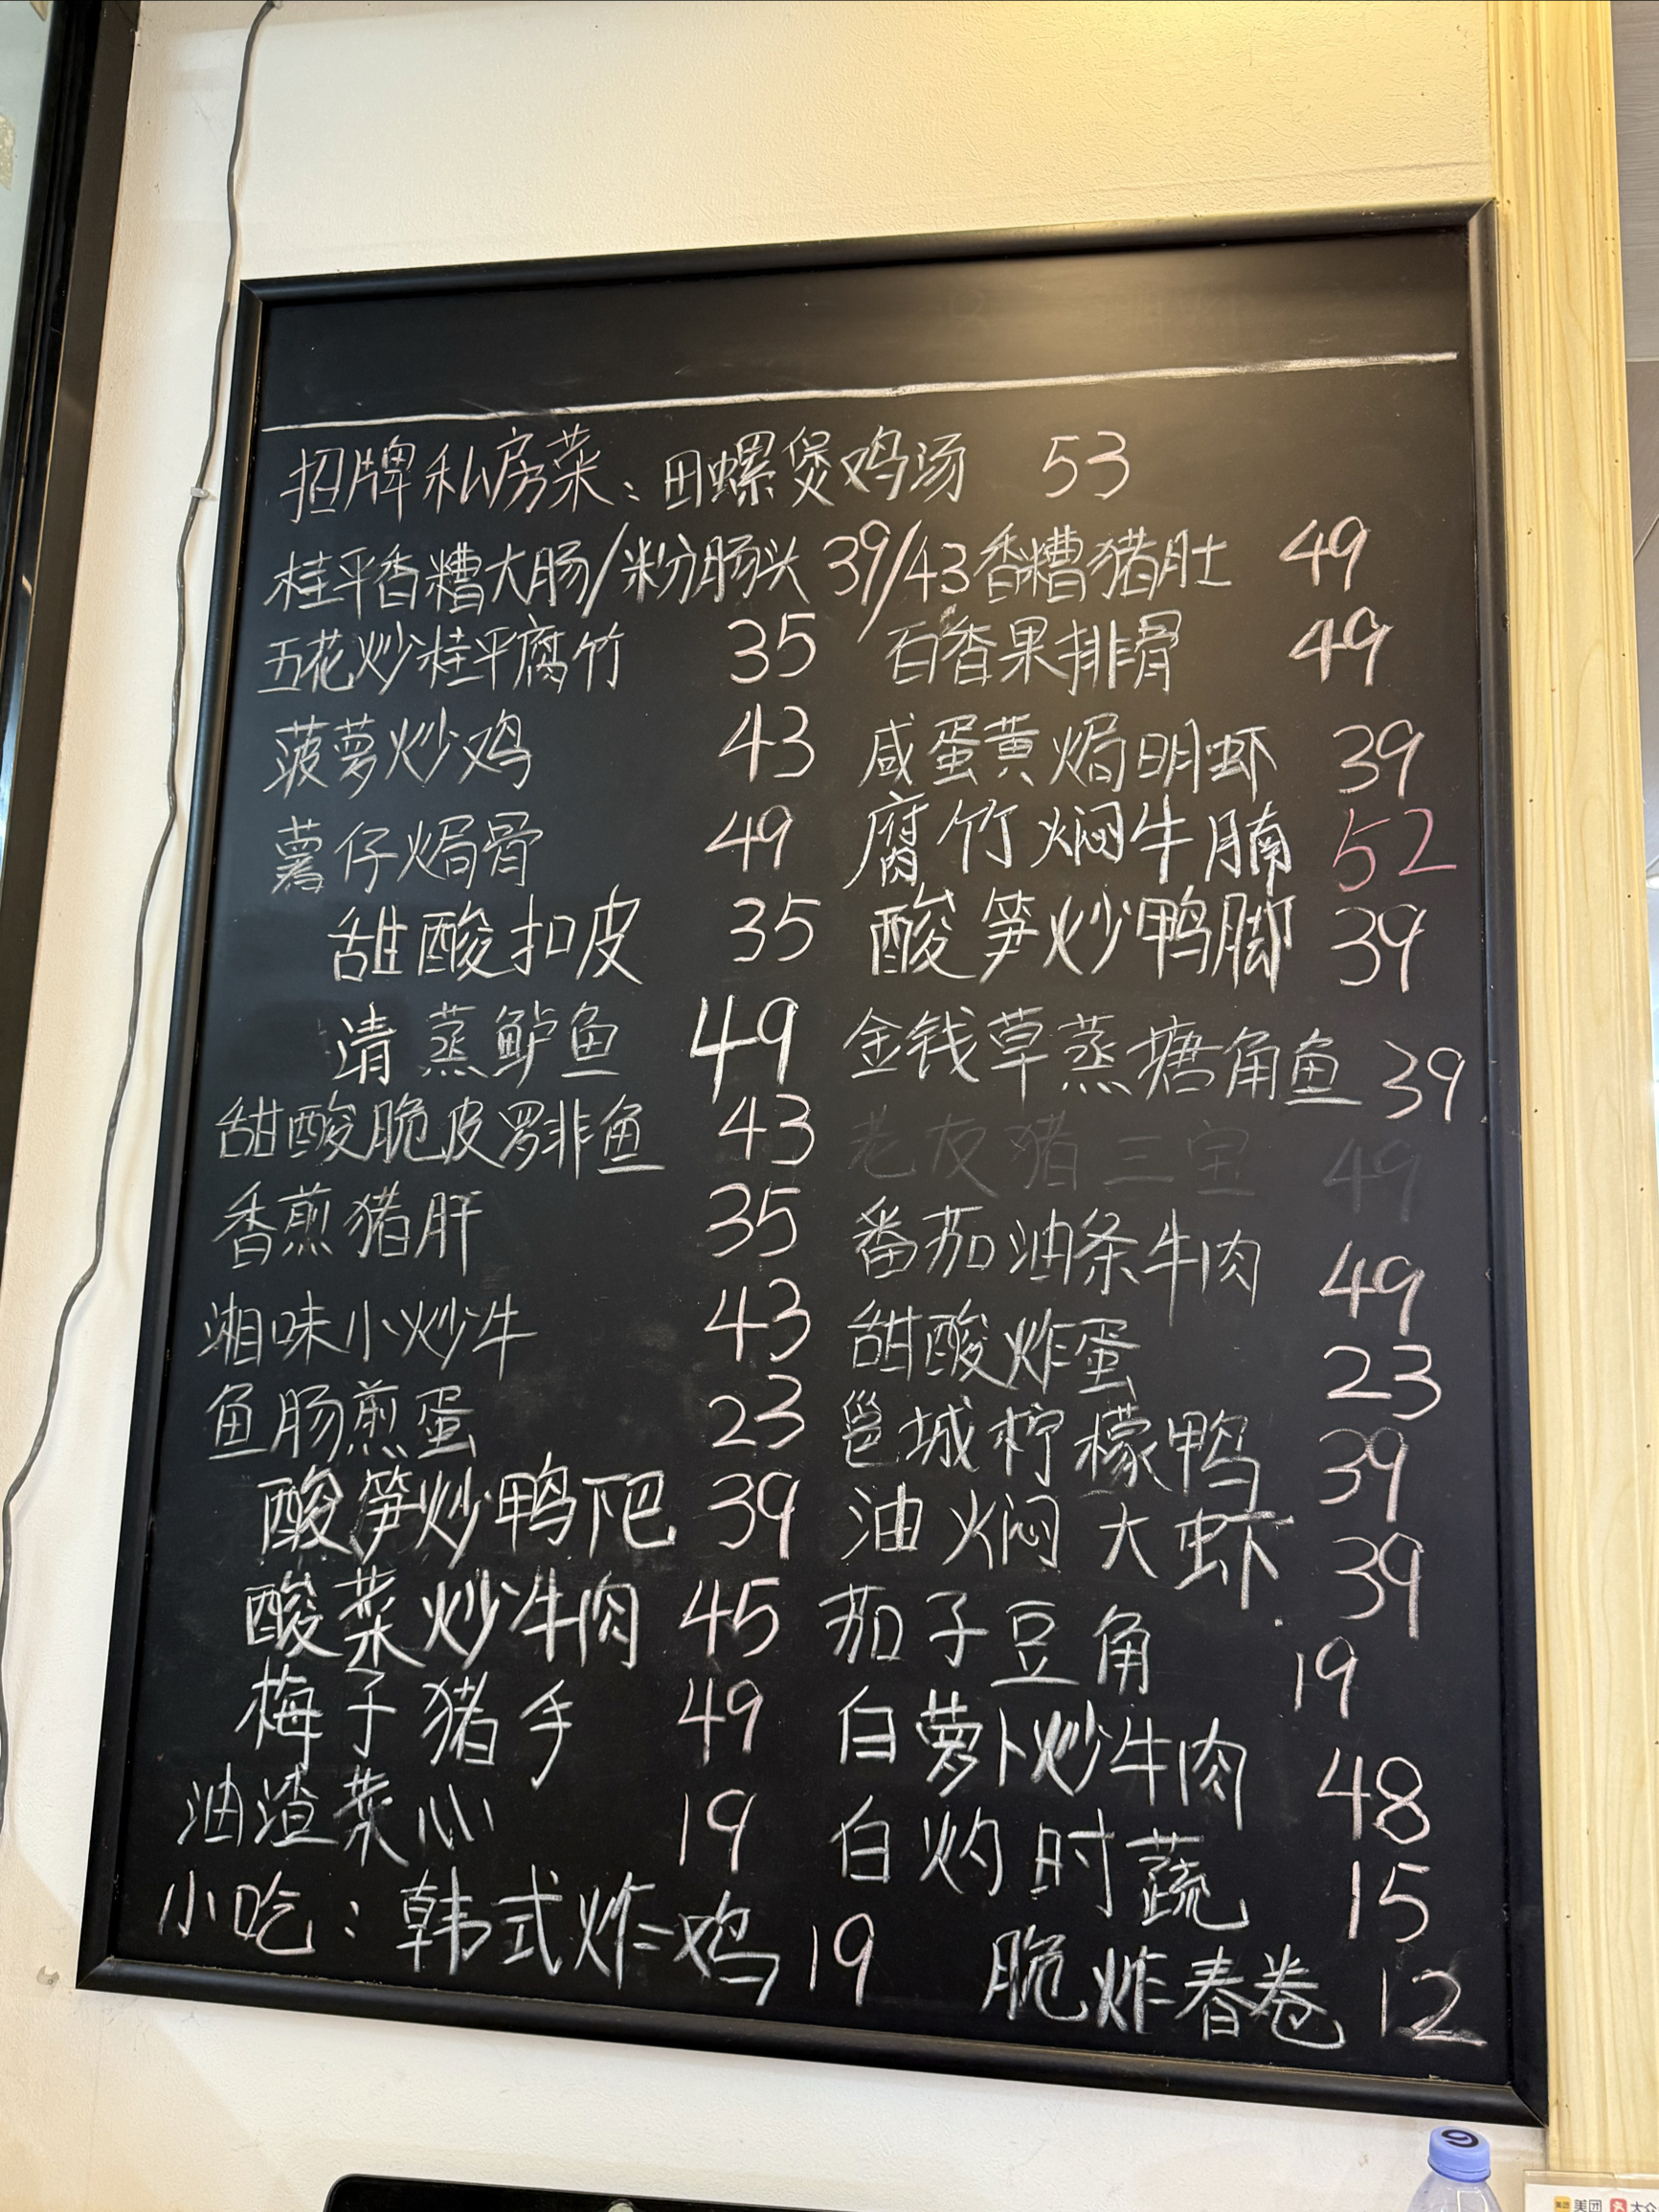 招牌私房菜：田螺煲鸡汤 53
桂平香糟大肠/粉肠头 39/43 香糟猪肚 49
五花炒桂平腐竹 35 百香果排骨 49
菠萝炒鸡 43 咸蛋黄焗明虾 39
薯仔焗骨 49 腐竹焖牛腩 52
甜酸扣皮 35 酸笋炒鸭脚 39
清蒸鲈鱼 49 金钱草蒸塘角鱼 39
甜酸脆皮罗非鱼 43 老友猪三宝 49
香煎猪肝 35 番茄油条牛肉 49
湘味小炒牛 43 甜酸炸蛋 23
鱼肠煎蛋 23 邕城柠檬鸭 39
酸笋炒鸭下巴 39 油焖大虾 39
酸菜炒牛肉 45 茄子豆角 19
梅子猪手 49 白萝卜炒牛肉 48
油渣菜心 19 白灼时蔬 15
小吃：韩式炸鸡 19 脆炸春卷 12
美团 大众